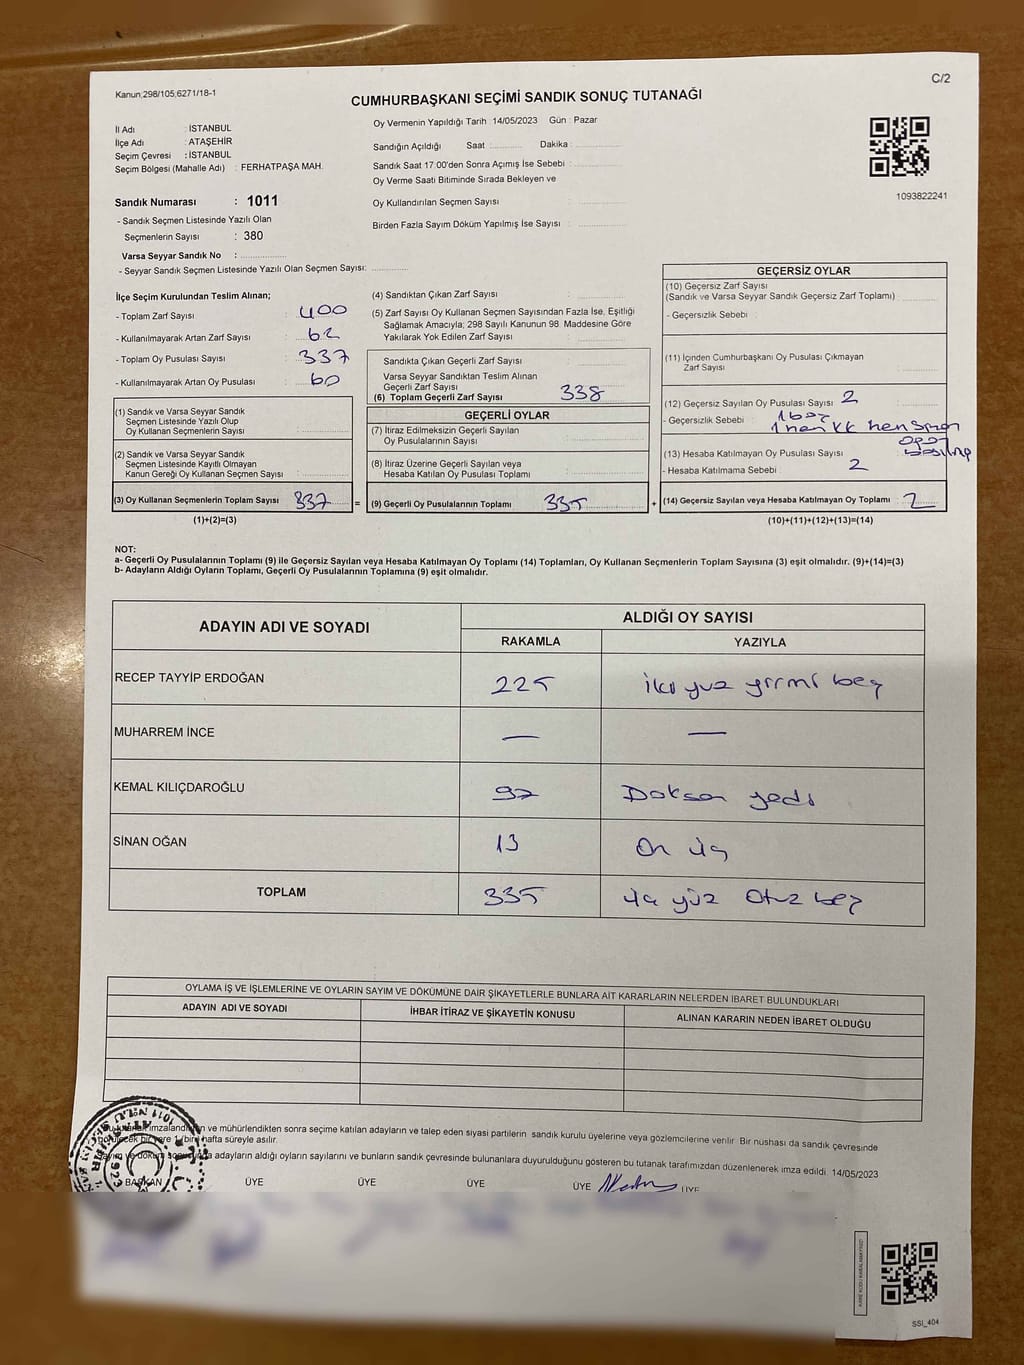 Kanun;298/105;6271/18-1
C/2
CUMHURBAŞKANI SEÇİMİ SANDIK SONUÇ TUTANAĞI
İl Adı : İSTANBUL
İlçe Adı : ATAŞEHİR
Seçim Çevresi : İSTANBUL
Seçim Bölgesi (Mahalle Adı) : FERHATPAŞA MAH.
Sandık Numarası : 1011
- Sandık Seçmen Listesinde Yazılı Olan
Seçmenlerin Sayısı : 380
Varsa Seyyar Sandık No :
- Seyyar Sandık Seçmen Listesinde Yazılı Olan Seçmen Sayısı:
Oy Vermenin Yapıldığı Tarih 14/05/2023 Gün : Pazar
Sandığın Açıldığı Saat : Dakika :
Sandık Saat 17:00'den Sonra Açımış İse Sebebi :
Oy Verme Saati Bitiminde Sırada Bekleyen ve
Oy Kullandırılan Seçmen Sayısı :
Birden Fazla Sayım Döküm Yapılmış İse Sayısı :
1093822241
İlçe Seçim Kurulundan Teslim Alınan;
- Toplam Zarf Sayısı : 400
- Kullanılmayarak Artan Zarf Sayısı : 62
- Toplam Oy Pusulası Sayısı : 337
- Kullanılmayarak Artan Oy Pusulası : 60
(1) Sandık ve Varsa Seyyar Sandık
Seçmen Listesinde Yazılı Olup
Oy Kullanan Seçmenlerin Sayısı :
(2) Sandık ve Varsa Seyyar Sandık
Seçmen Listesinde Kayıtlı Olmayan
Kanun Gereği Oy Kullanan Seçmen Sayısı :
(3) Oy Kullanan Seçmenlerin Toplam Sayısı : 337 =
(1)+(2)=(3)
(4) Sandıktan Çıkan Zarf Sayısı :
(5) Zarf Sayısı Oy Kullanan Seçmen Sayısından Fazla İse, Eşitliği
Sağlamak Amacıyla; 298 Sayılı Kanunun 98. Maddesine Göre
Yakılarak Yok Edilen Zarf Sayısı :
Sandıkta Çıkan Geçerli Zarf Sayısı :
Varsa Seyyar Sandıktan Teslim Alınan
Geçerli Zarf Sayısı :
(6) Toplam Geçerli Zarf Sayısı : 338
GEÇERLİ OYLAR
(7) İtiraz Edilmeksizin Geçerli Sayılan
Oy Pusulalarının Sayısı :
(8) İtiraz Üzerine Geçerli Sayılan veya
Hesaba Katılan Oy Pusulası Toplamı :
(9) Geçerli Oy Pusulalarının Toplamı : 335 +
GEÇERSİZ OYLAR
(10) Geçersiz Zarf Sayısı
(Sandık ve Varsa Seyyar Sandık Geçersiz Zarf Toplamı) :
- Geçersizlik Sebebi :
(11) İçinden Cumhurbaşkanı Oy Pusulası Çıkmayan
Zarf Sayısı :
(12) Geçersiz Sayılan Oy Pusulası Sayısı : 2
- Geçersizlik Sebebi : 1 boş
(13) Hesaba Katılmayan Oy Pusulası Sayısı :
- Hesaba Katılmama Sebebi : 2
(14) Geçersiz Sayılan veya Hesaba Katılmayan Oy Toplamı : 2
(10)+(11)+(12)+(13)=(14)
NOT:
a- Geçerli Oy Pusulalarının Toplamı (9) ile Geçersiz Sayılan veya Hesaba Katılmayan Oy Toplamı (14) Toplamları, Oy Kullanan Seçmenlerin Toplam Sayısına (3) eşit olmalıdır. (9)+(14)=(3)
b- Adayların Aldığı Oyların Toplamı, Geçerli Oy Pusulalarının Toplamına (9) eşit olmalıdır.
ADAYIN ADI VE SOYADI
ALDIĞI OY SAYISI
RAKAMLA YAZIYLA
RECEP TAYYİP ERDOĞAN 225 iki yüz yirmi beş
MUHARREM İNCE — —
KEMAL KILIÇDAROĞLU 97 Doksan yedi
SİNAN OĞAN 13 On üç
TOPLAM 335 üç yüz Otuz beş
OYLAMA İŞ VE İŞLEMLERİNE VE OYLARIN SAYIM VE DÖKÜMÜNE DAİR ŞİKAYETLERLE BUNLARA AİT KARARLARIN NELERDEN İBARET BULUNDUKLARI
ADAYIN ADI VE SOYADI İHBAR İTİRAZ VE ŞİKAYETİN KONUSU ALINAN KARARIN NEDEN İBARET OLDUĞU
imzalandıktan ve mühürlendikten sonra seçime katılan adayların ve talep eden siyasi partilerin sandık kurulu üyelerine veya gözlemcilerine verilir. Bir nüshası da sandık çevresinde
görülecek bir yere 1 (bir) hafta süreyle asılır.
Sayım ve döküm sonucunda adayların aldığı oyların sayılarını ve bunların sandık çevresinde bulunanlara duyurulduğunu gösteren bu tutanak tarafımızdan düzenlenerek imza edildi. 14/05/2023
BAŞKAN ÜYE ÜYE ÜYE ÜYE ÜYE
SSİ_404